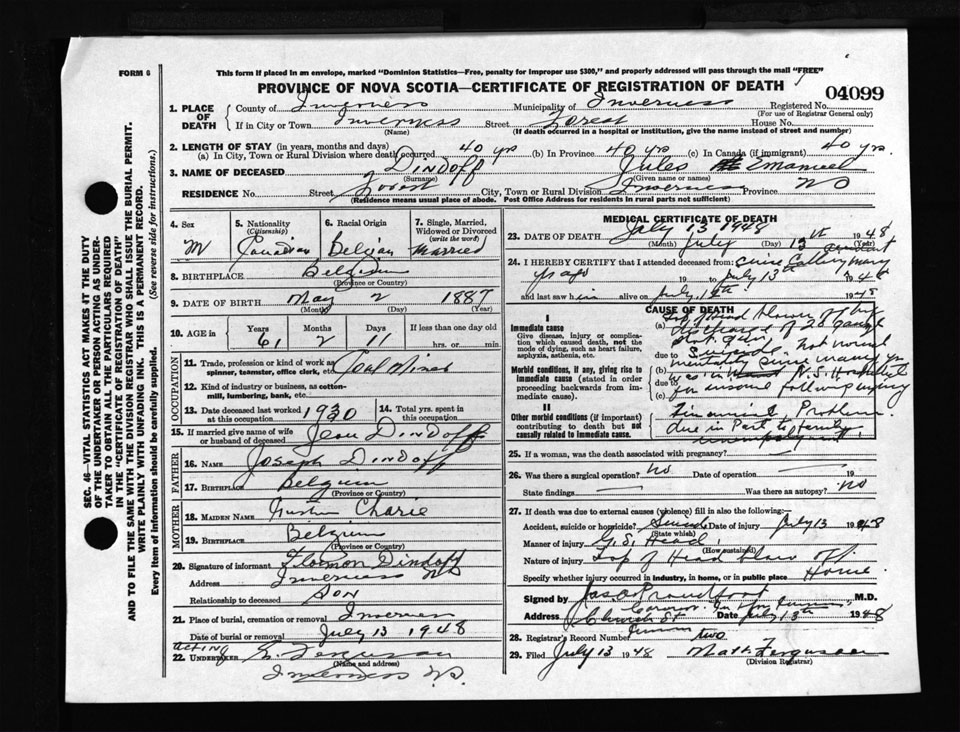 FORM 6
This form if placed in an envelope, marked "Dominion Statistics—Free, penalty for improper use $300," and properly addressed will pass through the mail "FREE"
PROVINCE OF NOVA SCOTIA—CERTIFICATE OF REGISTRATION OF DEATH
04099
1. PLACE OF DEATH
County of Inverness Municipality of Inverness Registered No.
(For use of Registrar General only)
If in City or Town Inverness Street Forest House No.
(Name) (If death occurred in a hospital or institution, give the name instead of street and number)
2. LENGTH OF STAY (in years, months and days)
(a) In City, Town or Rural Division where death occurred 40 yrs (b) In Province 40 yrs (c) In Canada (if immigrant) 40 yrs.
3. NAME OF DECEASED Dindoff Jules Emanuel
(Surname) (Given name or names)
RESIDENCE No. Street Forest City, Town or Rural Division Inverness Province NS
(Residence means usual place of abode. Post Office Address for residents in rural parts not sufficient)
SEC. 46—VITAL STATISTICS ACT MAKES IT THE DUTY
OF THE UNDERTAKER OR PERSON ACTING AS UNDER-
TAKER TO OBTAIN ALL THE PARTICULARS REQUIRED
IN THE "CERTIFICATE OF REGISTRATION OF DEATH"
AND TO FILE THE SAME WITH THE DIVISION REGISTRAR WHO SHALL ISSUE THE BURIAL PERMIT.
WRITE PLAINLY WITH UNFADING INK. THIS IS A PERMANENT RECORD.
Every item of information should be carefully supplied. (See reverse side for instructions.)
4. Sex
M
5. Nationality
(Citizenship)
Canadian
6. Racial Origin
Belgian
7. Single, Married, Widowed or Divorced
(write the word)
Married
8. BIRTHPLACE Belgium
(Province or Country)
9. DATE OF BIRTH May 2 1887
(Month) (Year)
10. AGE in
Years Months Days If less than one day old
61 2 11 hrs. or min.
OCCUPATION
11. Trade, profession or kind of work as spinner, teamster, office clerk, etc. Coal Miner
12. Kind of industry or business, as cotton-mill, lumbering, bank, etc.
13. Date deceased last worked at this occupation 1930
14. Total yrs. spent in this occupation
15. If married give name of wife or husband of deceased Jean Dindoff
FATHER
16. NAME Joseph Dindoff
17. BIRTHPLACE Belgium
(Province or Country)
MOTHER
18. MAIDEN NAME Charie
19. BIRTHPLACE Belgium
(Province or Country)
20. Signature of informant Dindoff
Address Inverness NS
Relationship to deceased Son
21. Place of burial, cremation or removal Inverness
Date of burial or removal July 13 1948
Acting
22. UNDERTAKER Ferguson
(Name and address)
Inverness N.S.
MEDICAL CERTIFICATE OF DEATH
July 13 1948
23. DATE OF DEATH July 13th 1948
(Month) (Day) (Year)
24. I HEREBY CERTIFY that I attended deceased from: many
years 19 to July 13th 1948
and last saw him alive on July 1948
CAUSE OF DEATH
I
Immediate cause
Give disease, injury or complication which caused death, not the mode of dying, such as heart failure, asphyxia, asthenia, etc.
(a) Top of Head blown off by discharge of 20 gauge shot gun.
due to Suicide Not normal
Morbid conditions, if any, giving rise to immediate cause (stated in order proceeding backwards from immediate cause).
(b) mentally since many yrs
due to N.S. Hospital
(c) for insane following injury
II
Other morbid conditions (if important) contributing to death but not causally related to immediate cause.
Financial Problem
due in Part to family
25. If a woman, was the death associated with pregnancy?
26. Was there a surgical operation? No Date of operation 19
State findings Was there an autopsy? no
27. If death was due to external causes (violence) fill in also the following:—
Accident, suicide or homicide? Suicide Date of injury July 13 1948
(State which)
Manner of injury G.S. Head
(How sustained)
Nature of injury Top of Head blown off
Specify whether injury occurred in industry, in home, or in public place Home
Signed by Jas. Proudfoot M.D.
Coroner
Address Church St Date July 13th 1948
28. Registrar's Record Number two
29. Filed July 13 1948 Matt. Ferguson
(Division Registrar)